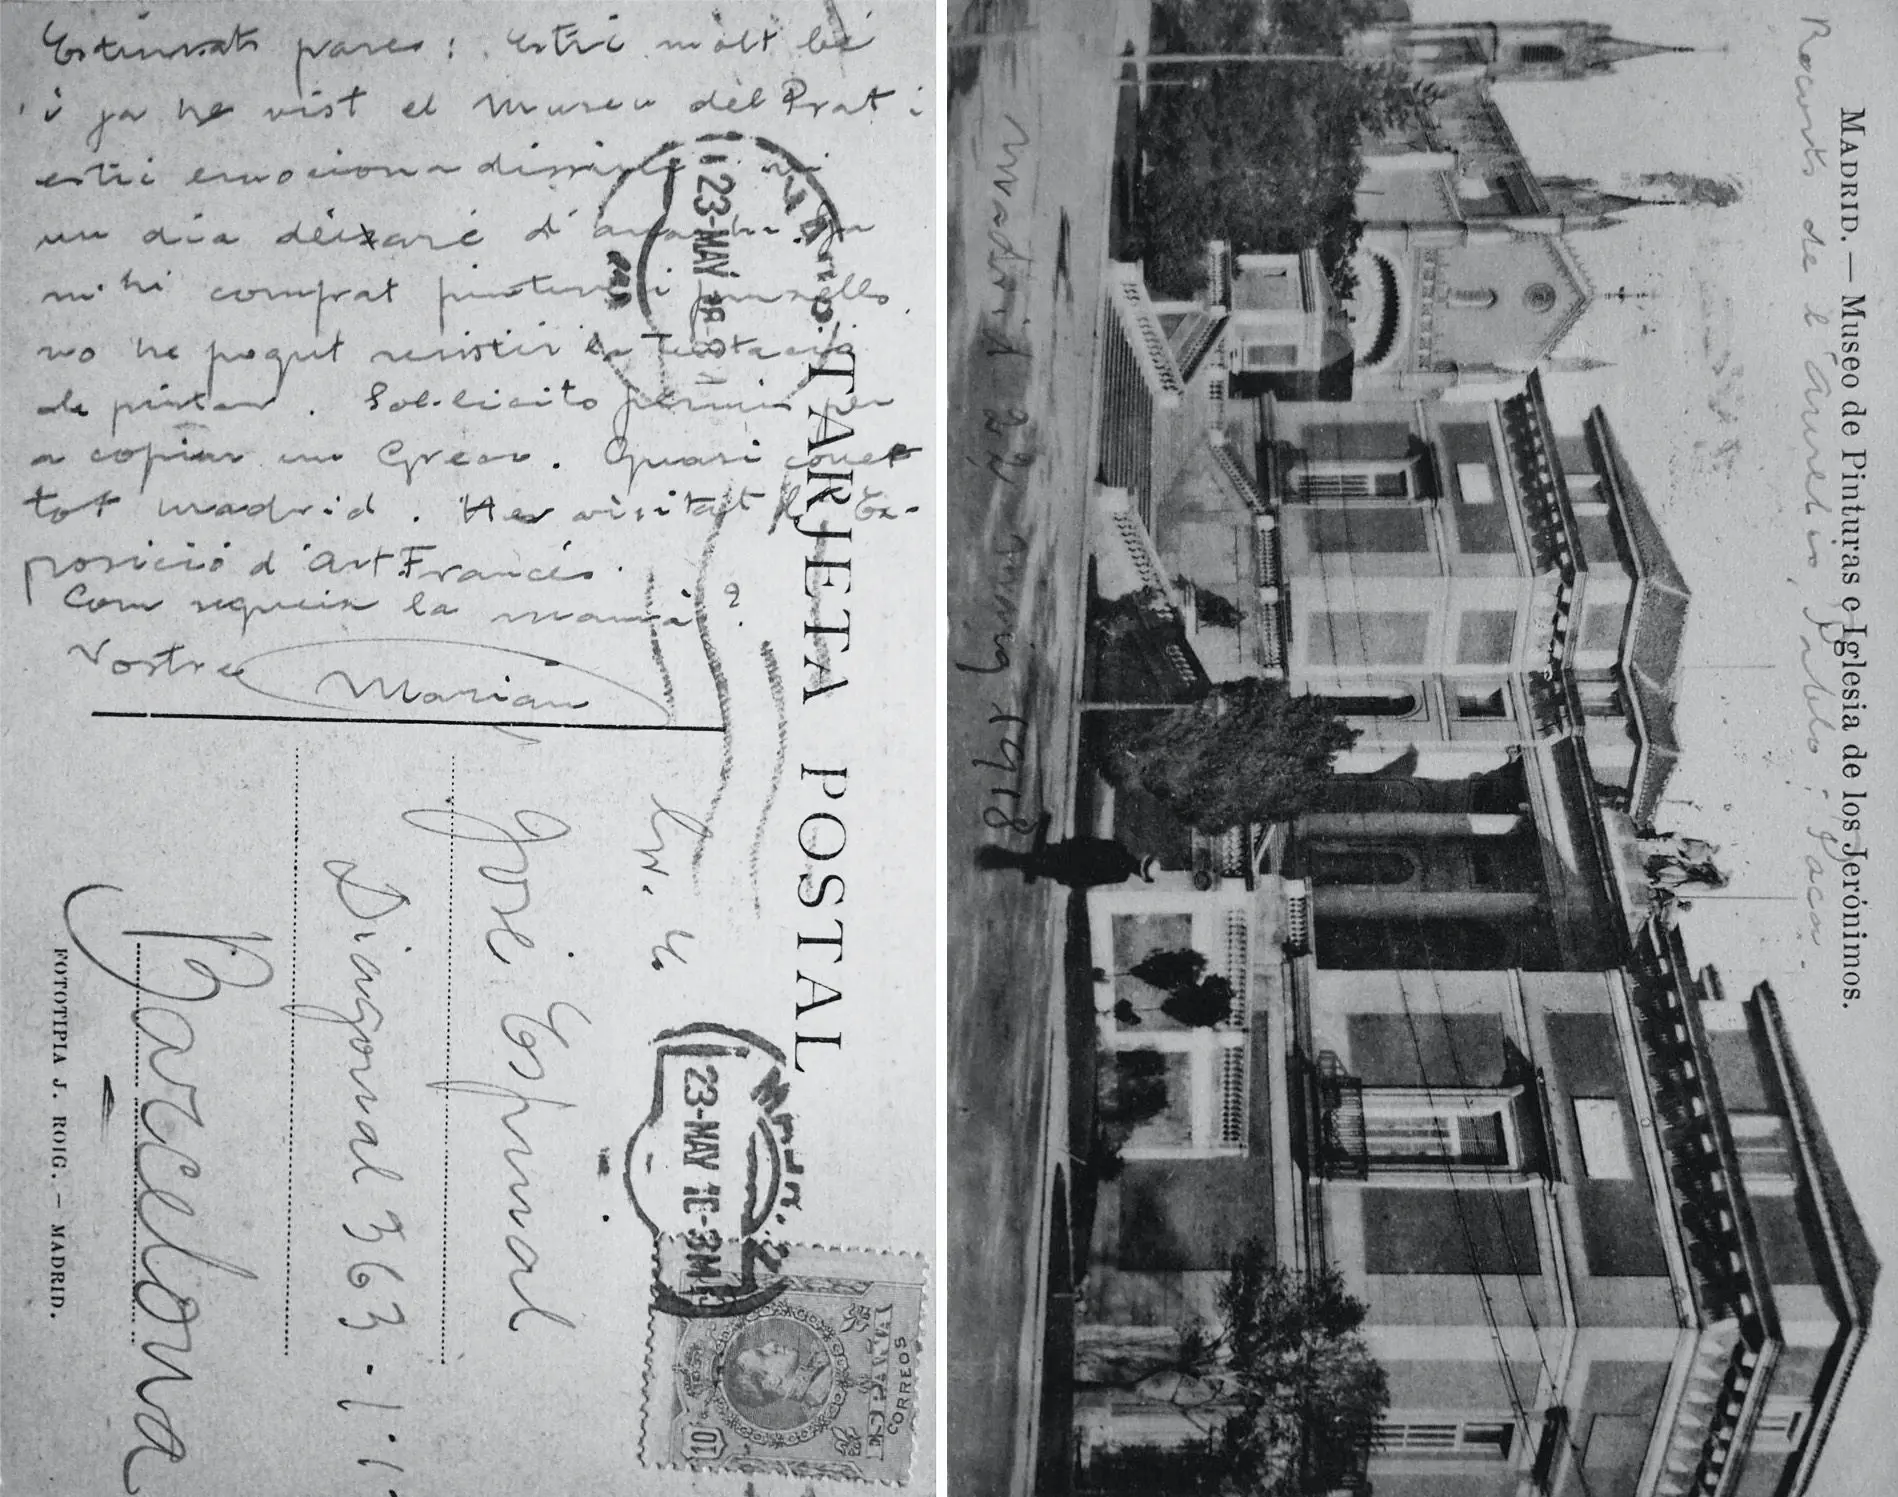 Estimats pares: Estic molt bé
i ja he vist el Museu del Prat i
estic emocionadíssim
un dia deixaré d'
m'hi comprat pintures i pinzells
no he pogut resistir la tentació
de pintar. Sol·licito permís per
a copiar un Greco. Quasi conec
tot madrid. He visitat l'Ex-
posició d'Art Francés.
Com segueix la mamá?
Vostre Marian
TARJETA POSTAL
José Espinal
Diagonal 363-1-1
Barcelona
FOTOTIPIA J. ROIG. - MADRID.
MADRID
23-MAY 18-8
23-MAY 18-3M
ESPAÑA
CORREOS
10
MADRID. — Museo de Pinturas e Iglesia de los Jerónimos.
Records de l'Aureli, Pablo i Jacn.
Madrid 22 maig 1918